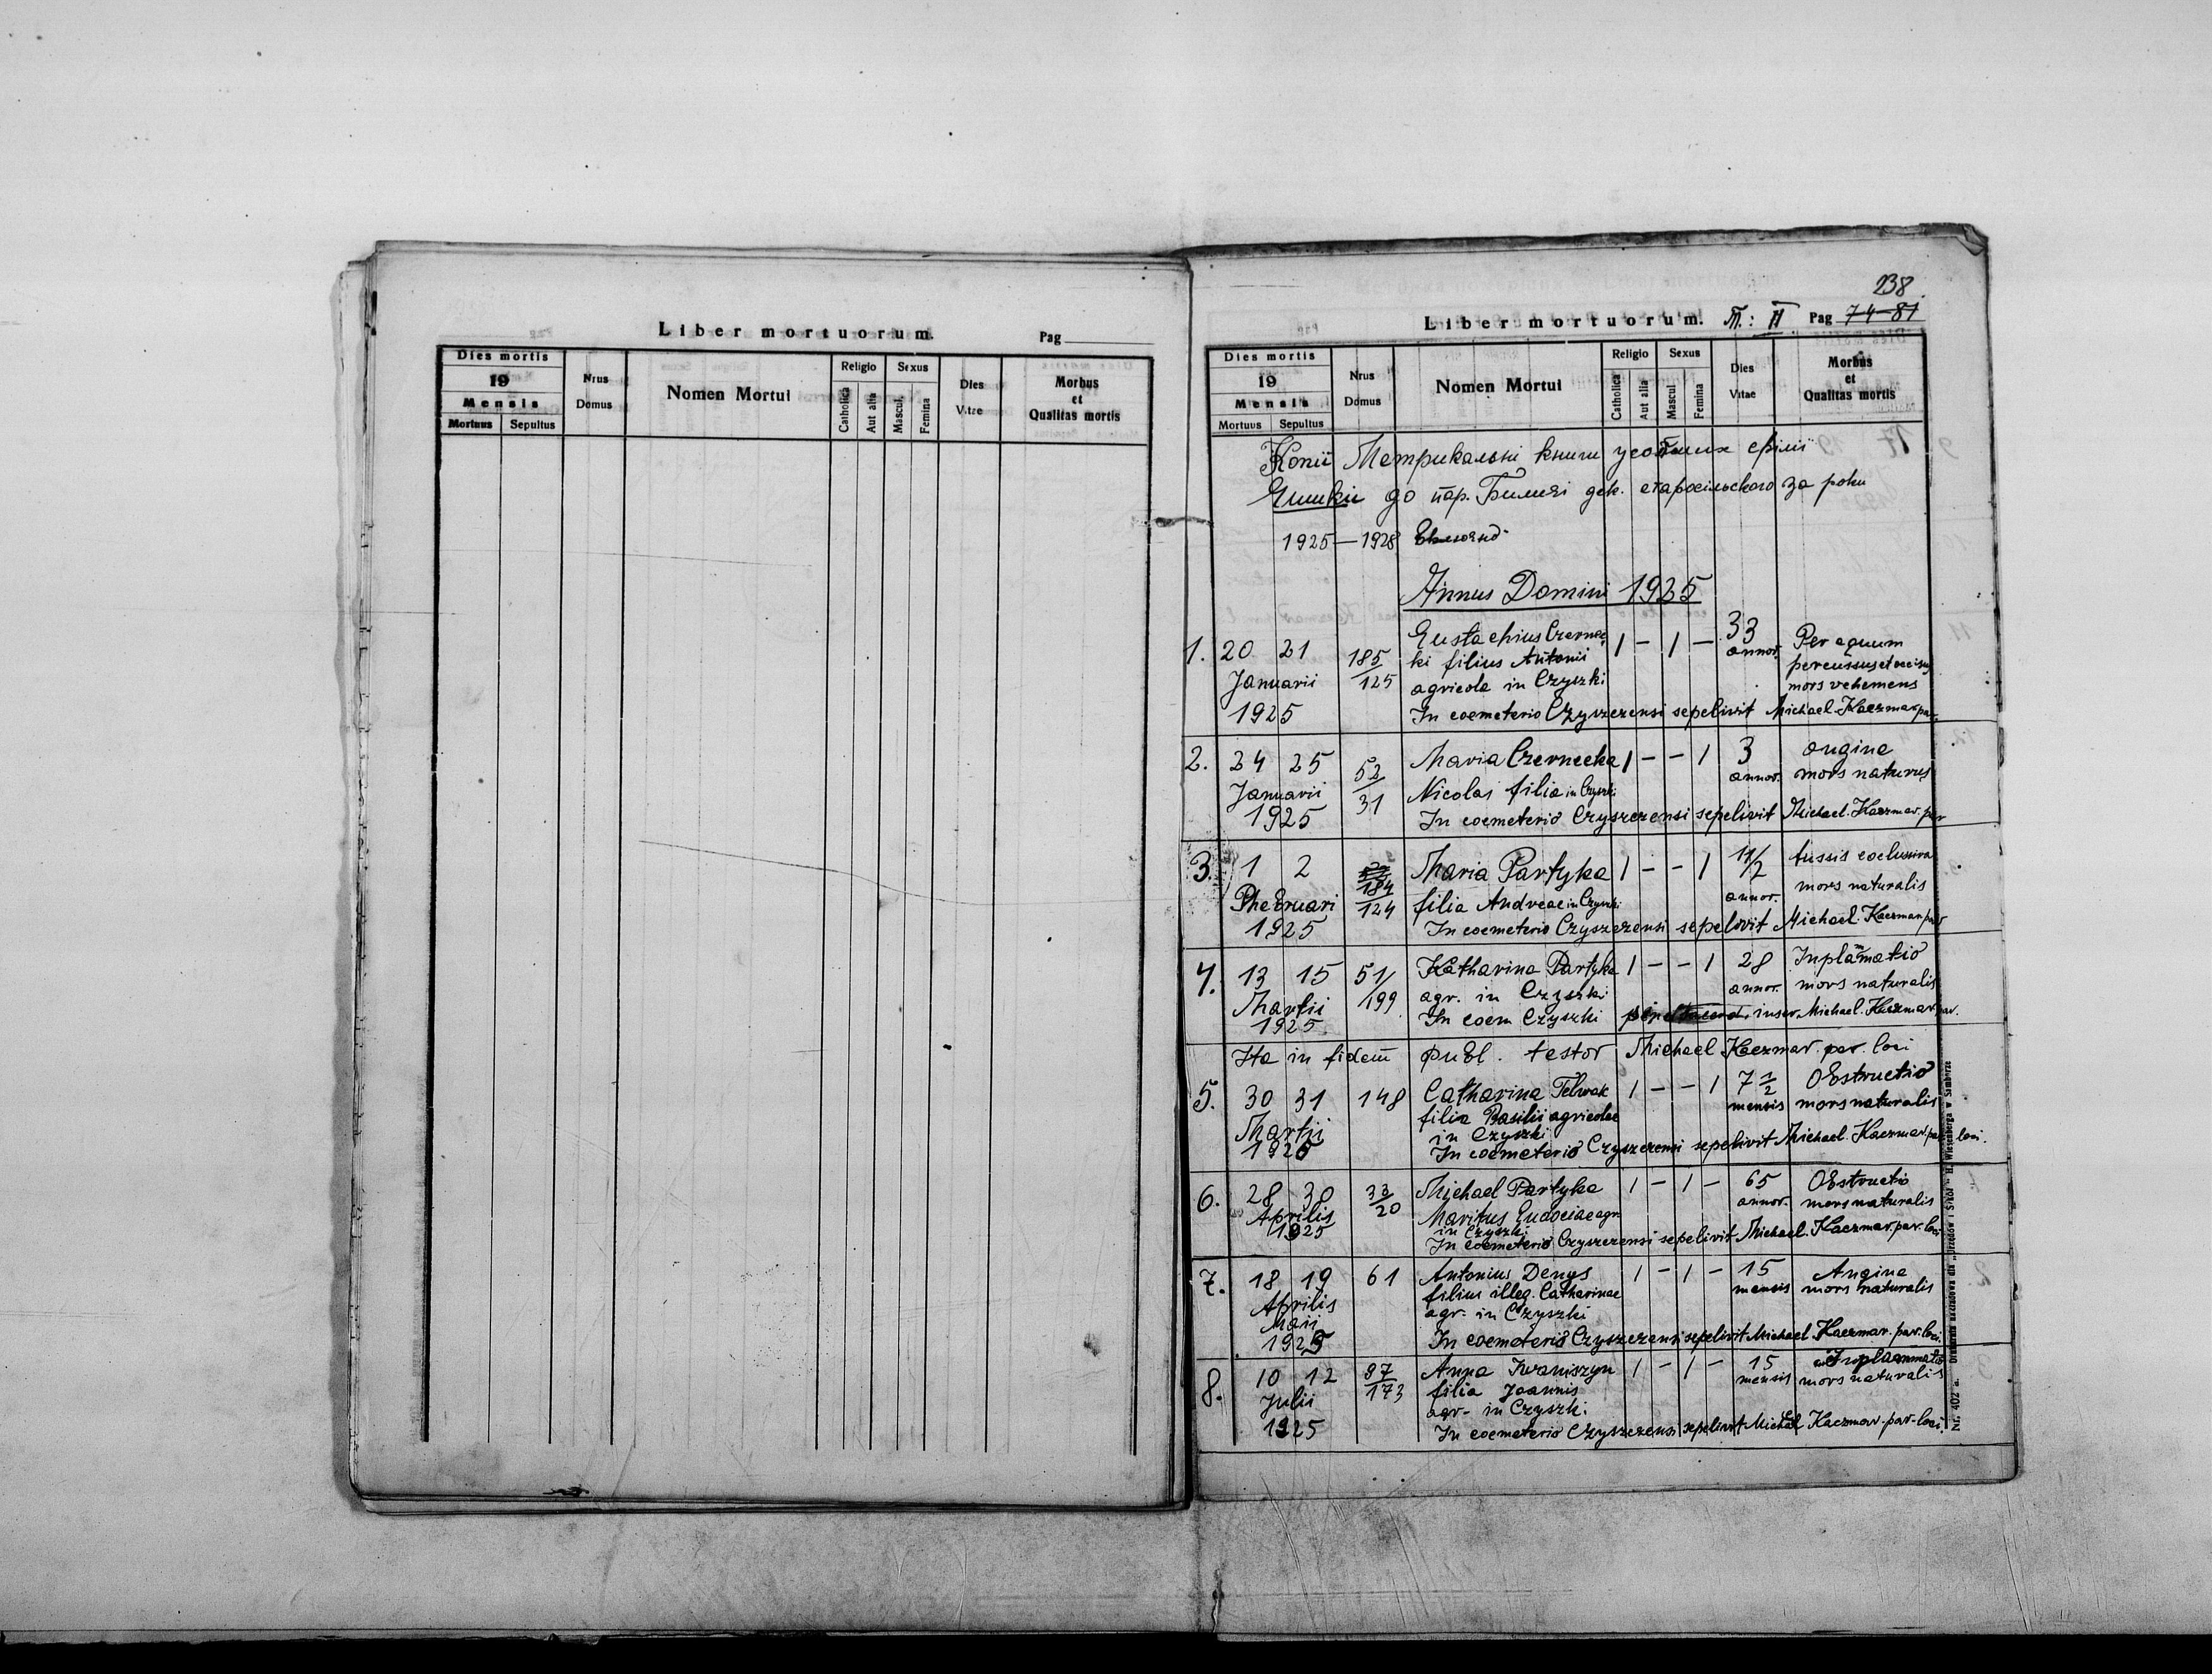 Liber mortuorum.
Pag
Dies mortis
19
Mensis
Mortuus Sepultus
Nrus Domus
Nomen Mortui
Religio
Catholica Aut alia
Sexus
Mascul. Femina
Dies Vitae
Morbus et Qualitas mortis
238.
Liber mortuorum. T.: II Pag 74-81
Dies mortis
19
Mensis
Mortuus Sepultus
Nrus Domus
Nomen Mortui
Religio
Catholica Aut alia
Sexus
Mascul. Femina
Dies Vitae
Morbus et Qualitas mortis
Копії Метрикальні книги усопших філії
Чишки до пар. дек. старосільского за роки
1925 — 1928
Annus Domini 1925
1. 20 21 185 Eustachius Czernec- 1 - 1 - 33 Per equum
ki filius Antonii annor. percussus et occisus
Januarii 125 agricola in Czyszki mors vehemens
1925 In coemeterio Czyszczensi sepelivit Michael Kaczmar par.
2. 24 25 52 Maria Czernecka 1 - - 1 3 angina
Januarii 31 Nicolai filia in Czyszki annor. mors
1925 In coemeterio Czyszczensi sepelivit Michael. Kaczmar. par
3. 1 2 184 Maria Partyka 1 - - 1 1 1/2 tussis
Phebruari 124 filia Andreae in Czyszki annor. mors naturalis
1925 In coemeterio Czyszczensi sepelivit Michael. Kaczmar par
4. 13 15 51/ Katharina Partyka 1 - - 1 28 Inplamatio
Martii 199 agr. in Czyszki annor. mors naturalis
1925. In coem Czyszki Michael. Kaczmar par.
Ita in fidem publ. testor Michael Kaczmar. par. loci
5. 30 31 148 Catharina Telwak 1 - - 1 7 1/2 Obstructio
filia Basilii agricolae mensis mors naturalis
Martii in Czyszki
1925 In coemeterio Czyszczensi sepelivit Michael. Kaczmar. par loci.
6. 28 30 33 Michael Partyka 1 - 1 - 65 Obstructio
Aprilis 20 Maritus Eudociae agr. annor. mors naturalis
1925 in Czyszki
In coemeterio Czyszczensi sepelivit Michael. Kaczmar. par. loci
7. 18 19 61 Antonius Denys 1 - 1 - 15 Angina
Aprilis filius illeg. Catharinae mensis mors naturalis
Maii agr. in Czyszki
1925 In coemeterio Czyszczensi sepelivit Michael Kaczmar. par. loci.
8. 10 12 97 Anna Iwaniszyn 1 - 1 - 15 Inplammatio
Julii 173 filia Joannis mensis mors naturalis
agr- in Czyszki.
1925 In coemeterio Czyszczensi sepelivit Michael Kaczmar- par- loci.
Nr. 402 a. Drukarnia nakładowa dla „Urzędów i Szkół” H. Wiesenberga w Samborze